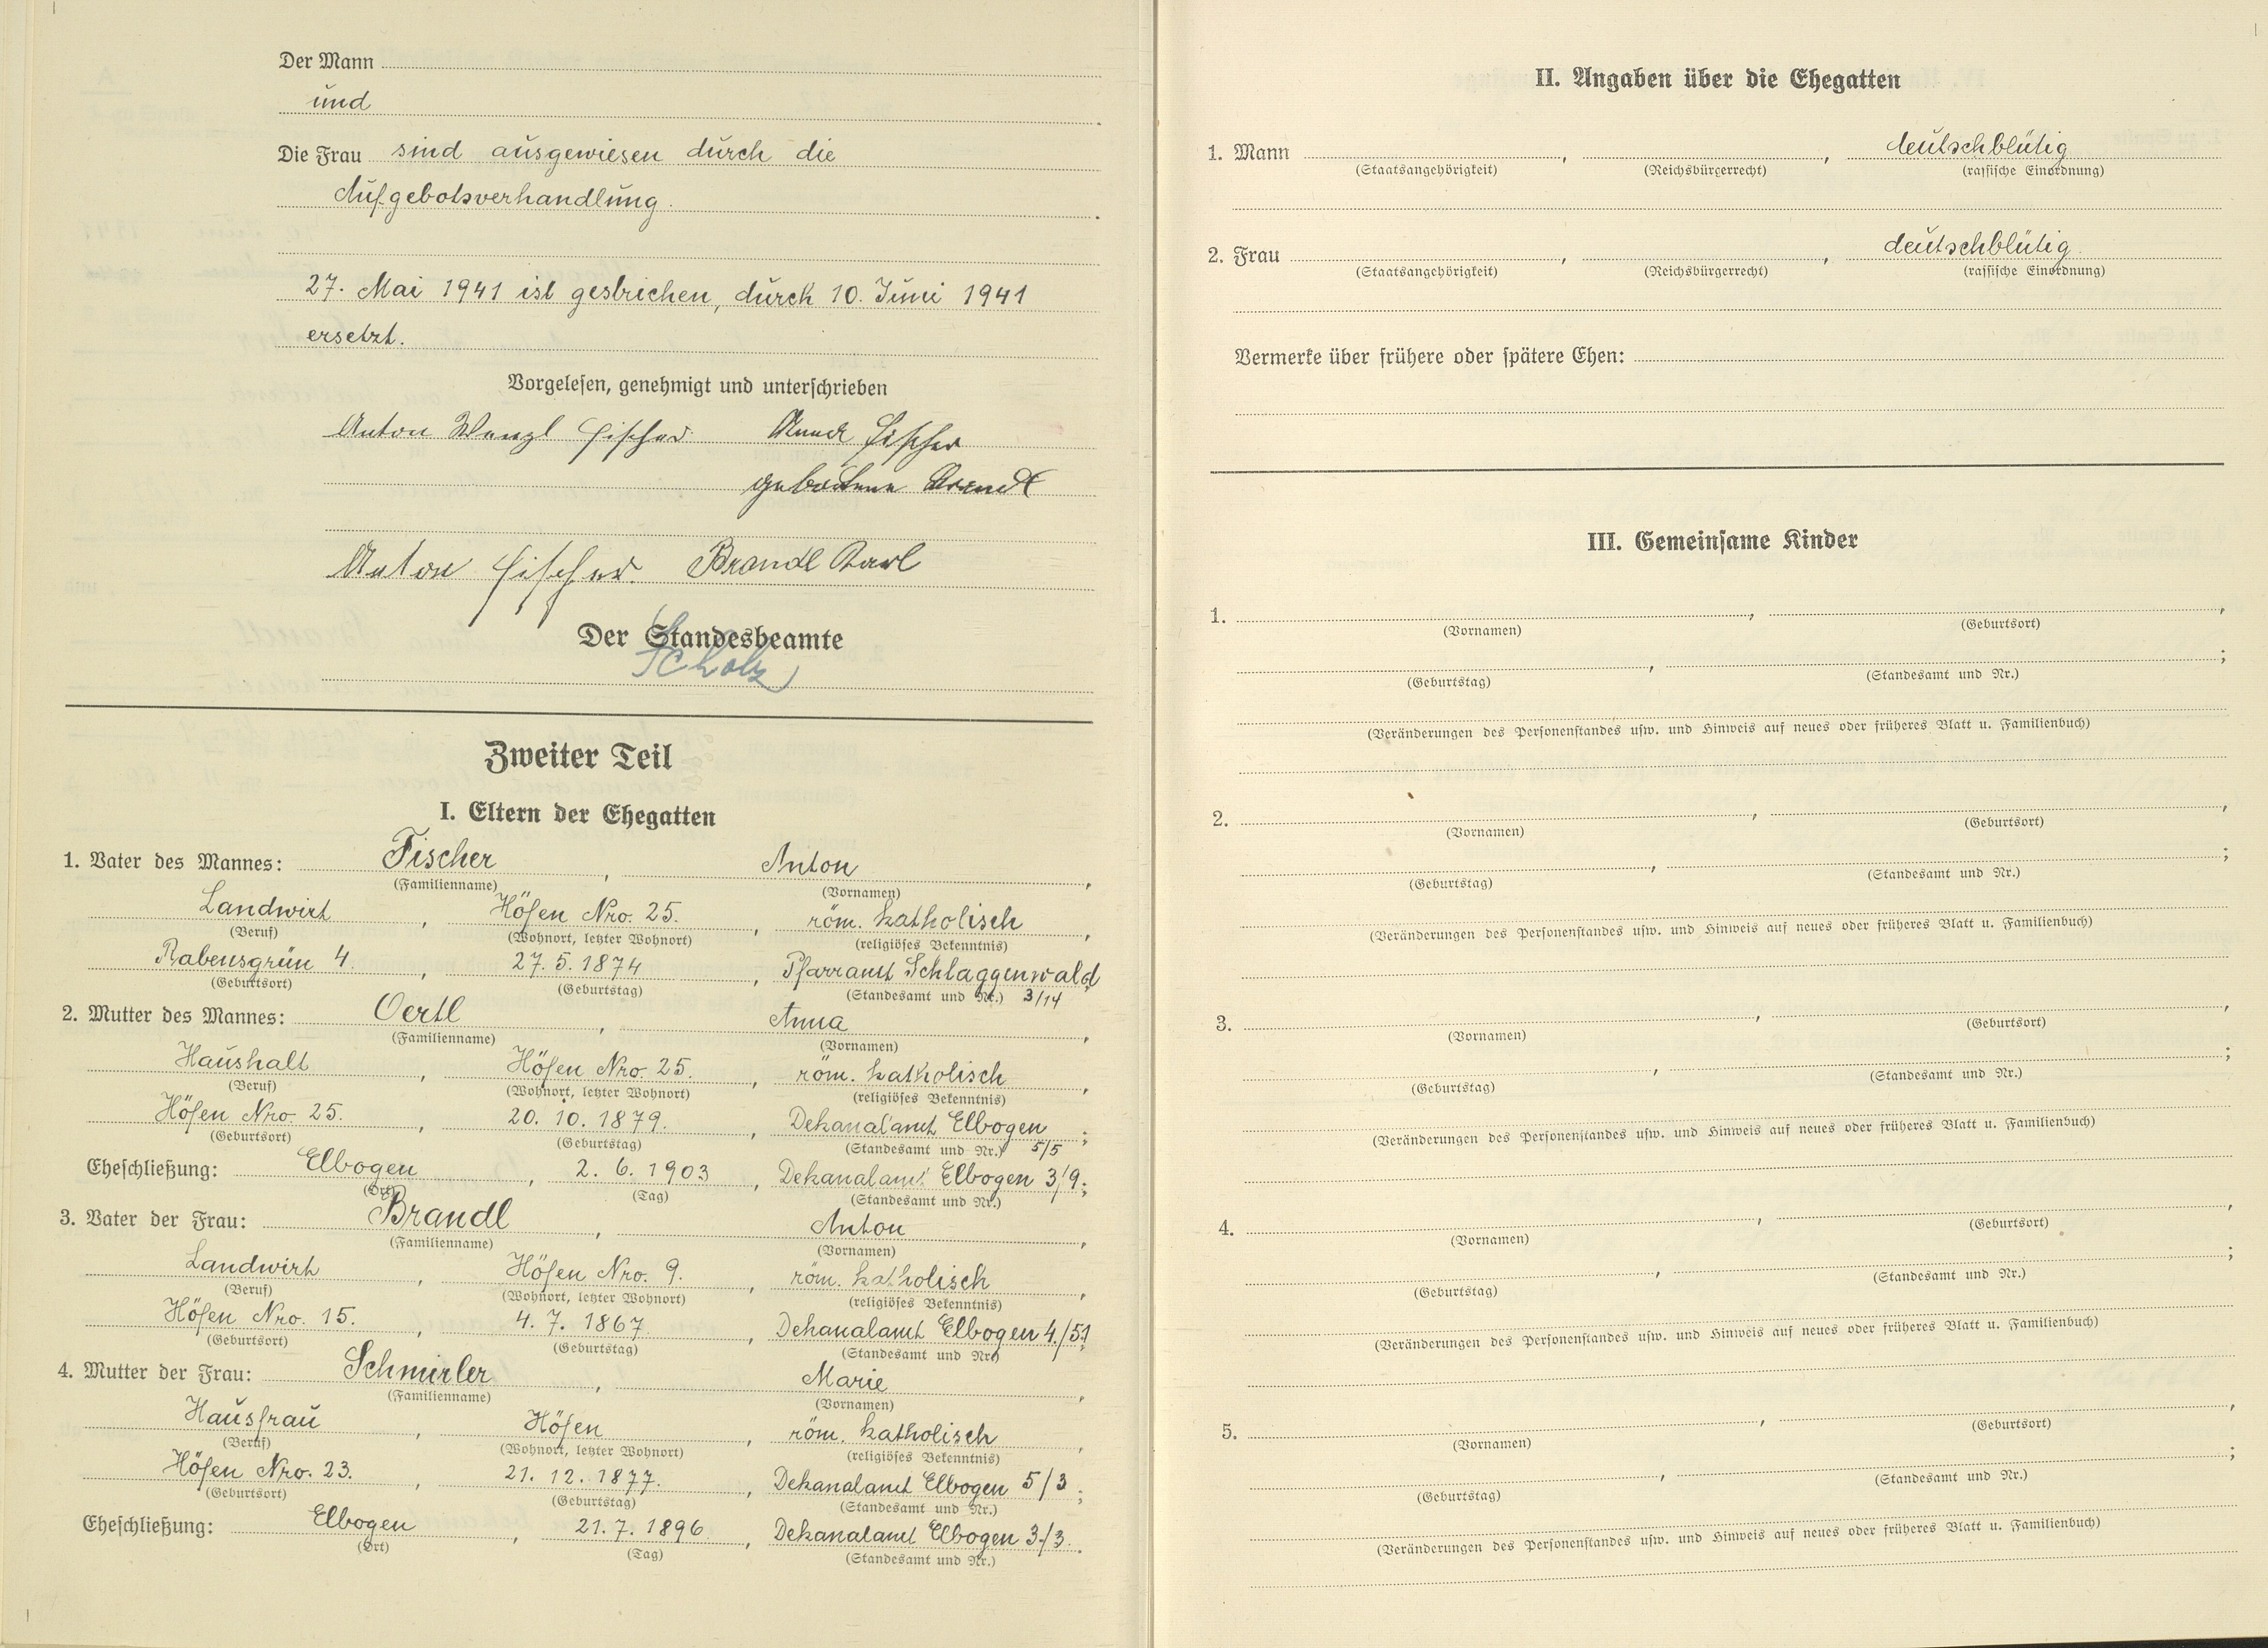 Der Mann
und
Die Frau sind ausgewiesen durch die
Aufgebotsverhandlung.
27. Mai 1941 ist gestrichen, durch 10. Juni 1941
ersetzt.
Vorgelesen, genehmigt und unterschrieben
Anton Wenzl Fischer Anna Fischer
geborene Brandl
Anton Fischer. Brandl Karl
Der Standesbeamte
Scholz
Zweiter Teil
I. Eltern der Ehegatten
1. Vater des Mannes: Fischer, Anton,
(Familienname) (Vornamen)
Landwirt, Höfen Nro. 25., röm. katholisch,
(Beruf) (Wohnort, letzter Wohnort) (religiöses Bekenntnis)
Rabensgrün 4., 27. 5. 1874, Pfarramt Schlaggenwald
(Geburtsort) (Geburtstag) (Standesamt und Nr.) 3/14
2. Mutter des Mannes: Oertl, Anna,
(Familienname) (Vornamen)
Haushalt, Höfen Nro. 25., röm. katholisch,
(Beruf) (Wohnort, letzter Wohnort) (religiöses Bekenntnis)
Höfen Nro. 25., 20. 10. 1879., Dekanalamt Elbogen;
(Geburtsort) (Geburtstag) (Standesamt und Nr.) 5/5
Eheschließung: Elbogen, 2. 6. 1903, Dekanalamt Elbogen 3/9;
(Ort) (Tag) (Standesamt und Nr.)
3. Vater der Frau: Brandl, Anton,
(Familienname) (Vornamen)
Landwirt, Höfen Nro. 9., röm. katholisch,
(Beruf) (Wohnort, letzter Wohnort) (religiöses Bekenntnis)
Höfen Nro. 15., 4. 7. 1867, Dekanalamt Elbogen 4./51
(Geburtsort) (Geburtstag) (Standesamt und Nr.)
4. Mutter der Frau: Schmirler, Marie,
(Familienname) (Vornamen)
Hausfrau, Höfen, röm. katholisch,
(Beruf) (Wohnort, letzter Wohnort) (religiöses Bekenntnis)
Höfen Nro. 23., 21. 12. 1877., Dekanalamt Elbogen 5/3;
(Geburtsort) (Geburtstag) (Standesamt und Nr.)
Eheschließung: Elbogen, 21. 7. 1896, Dekanalamt Elbogen 3./3.
(Ort) (Tag) (Standesamt und Nr.)
II. Angaben über die Ehegatten
1. Mann , , deutschblütig
(Staatsangehörigkeit) (Reichsbürgerrecht) (rassische Einordnung)
2. Frau , , deutschblütig.
(Staatsangehörigkeit) (Reichsbürgerrecht) (rassische Einordnung)
Vermerke über frühere oder spätere Ehen:
III. Gemeinsame Kinder
1. , ,
(Vornamen) (Geburtsort)
, ;
(Geburtstag) (Standesamt und Nr.)
(Veränderungen des Personenstandes usw. und Hinweis auf neues oder früheres Blatt u. Familienbuch)
2. , ,
(Vornamen) (Geburtsort)
, ;
(Geburtstag) (Standesamt und Nr.)
(Veränderungen des Personenstandes usw. und Hinweis auf neues oder früheres Blatt u. Familienbuch)
3. , ,
(Vornamen) (Geburtsort)
, ;
(Geburtstag) (Standesamt und Nr.)
(Veränderungen des Personenstandes usw. und Hinweis auf neues oder früheres Blatt u. Familienbuch)
4. , ,
(Vornamen) (Geburtsort)
, ;
(Geburtstag) (Standesamt und Nr.)
(Veränderungen des Personenstandes usw. und Hinweis auf neues oder früheres Blatt u. Familienbuch)
5. , ,
(Vornamen) (Geburtsort)
, ;
(Geburtstag) (Standesamt und Nr.)
(Veränderungen des Personenstandes usw. und Hinweis auf neues oder früheres Blatt u. Familienbuch)